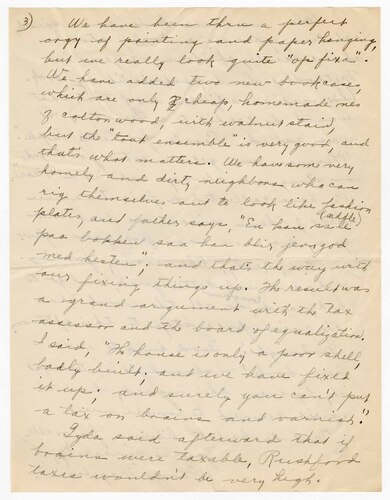 3)
We have been thru a perfect
orgy of painting and paper hanging,
but we really look quite "opfixa".
We have added two new bookcases,
which are only cheap, homemade ones
of cottonwood, with walnut staid,
but the "tout ensemble" is very good, and
that's what matters. We have some very
homely and dirty neighbors who can
rig themselves out to look like fashion
plates, and father says, "En kan sale
(saffle)
paa koppen saa han blir jevngod
med hesten"; and that's the way with
our fixing things up. The result was
a grand argument with the tax
assessor and the board of equalization.
I said, "The house is only a poor shell,
badly built; and we have fixed
it up; and surely you can't put
a tax on brains and varnish."
Lyda said afterward that if
brains were taxable, Rushford
taxes wouldn't be very high.